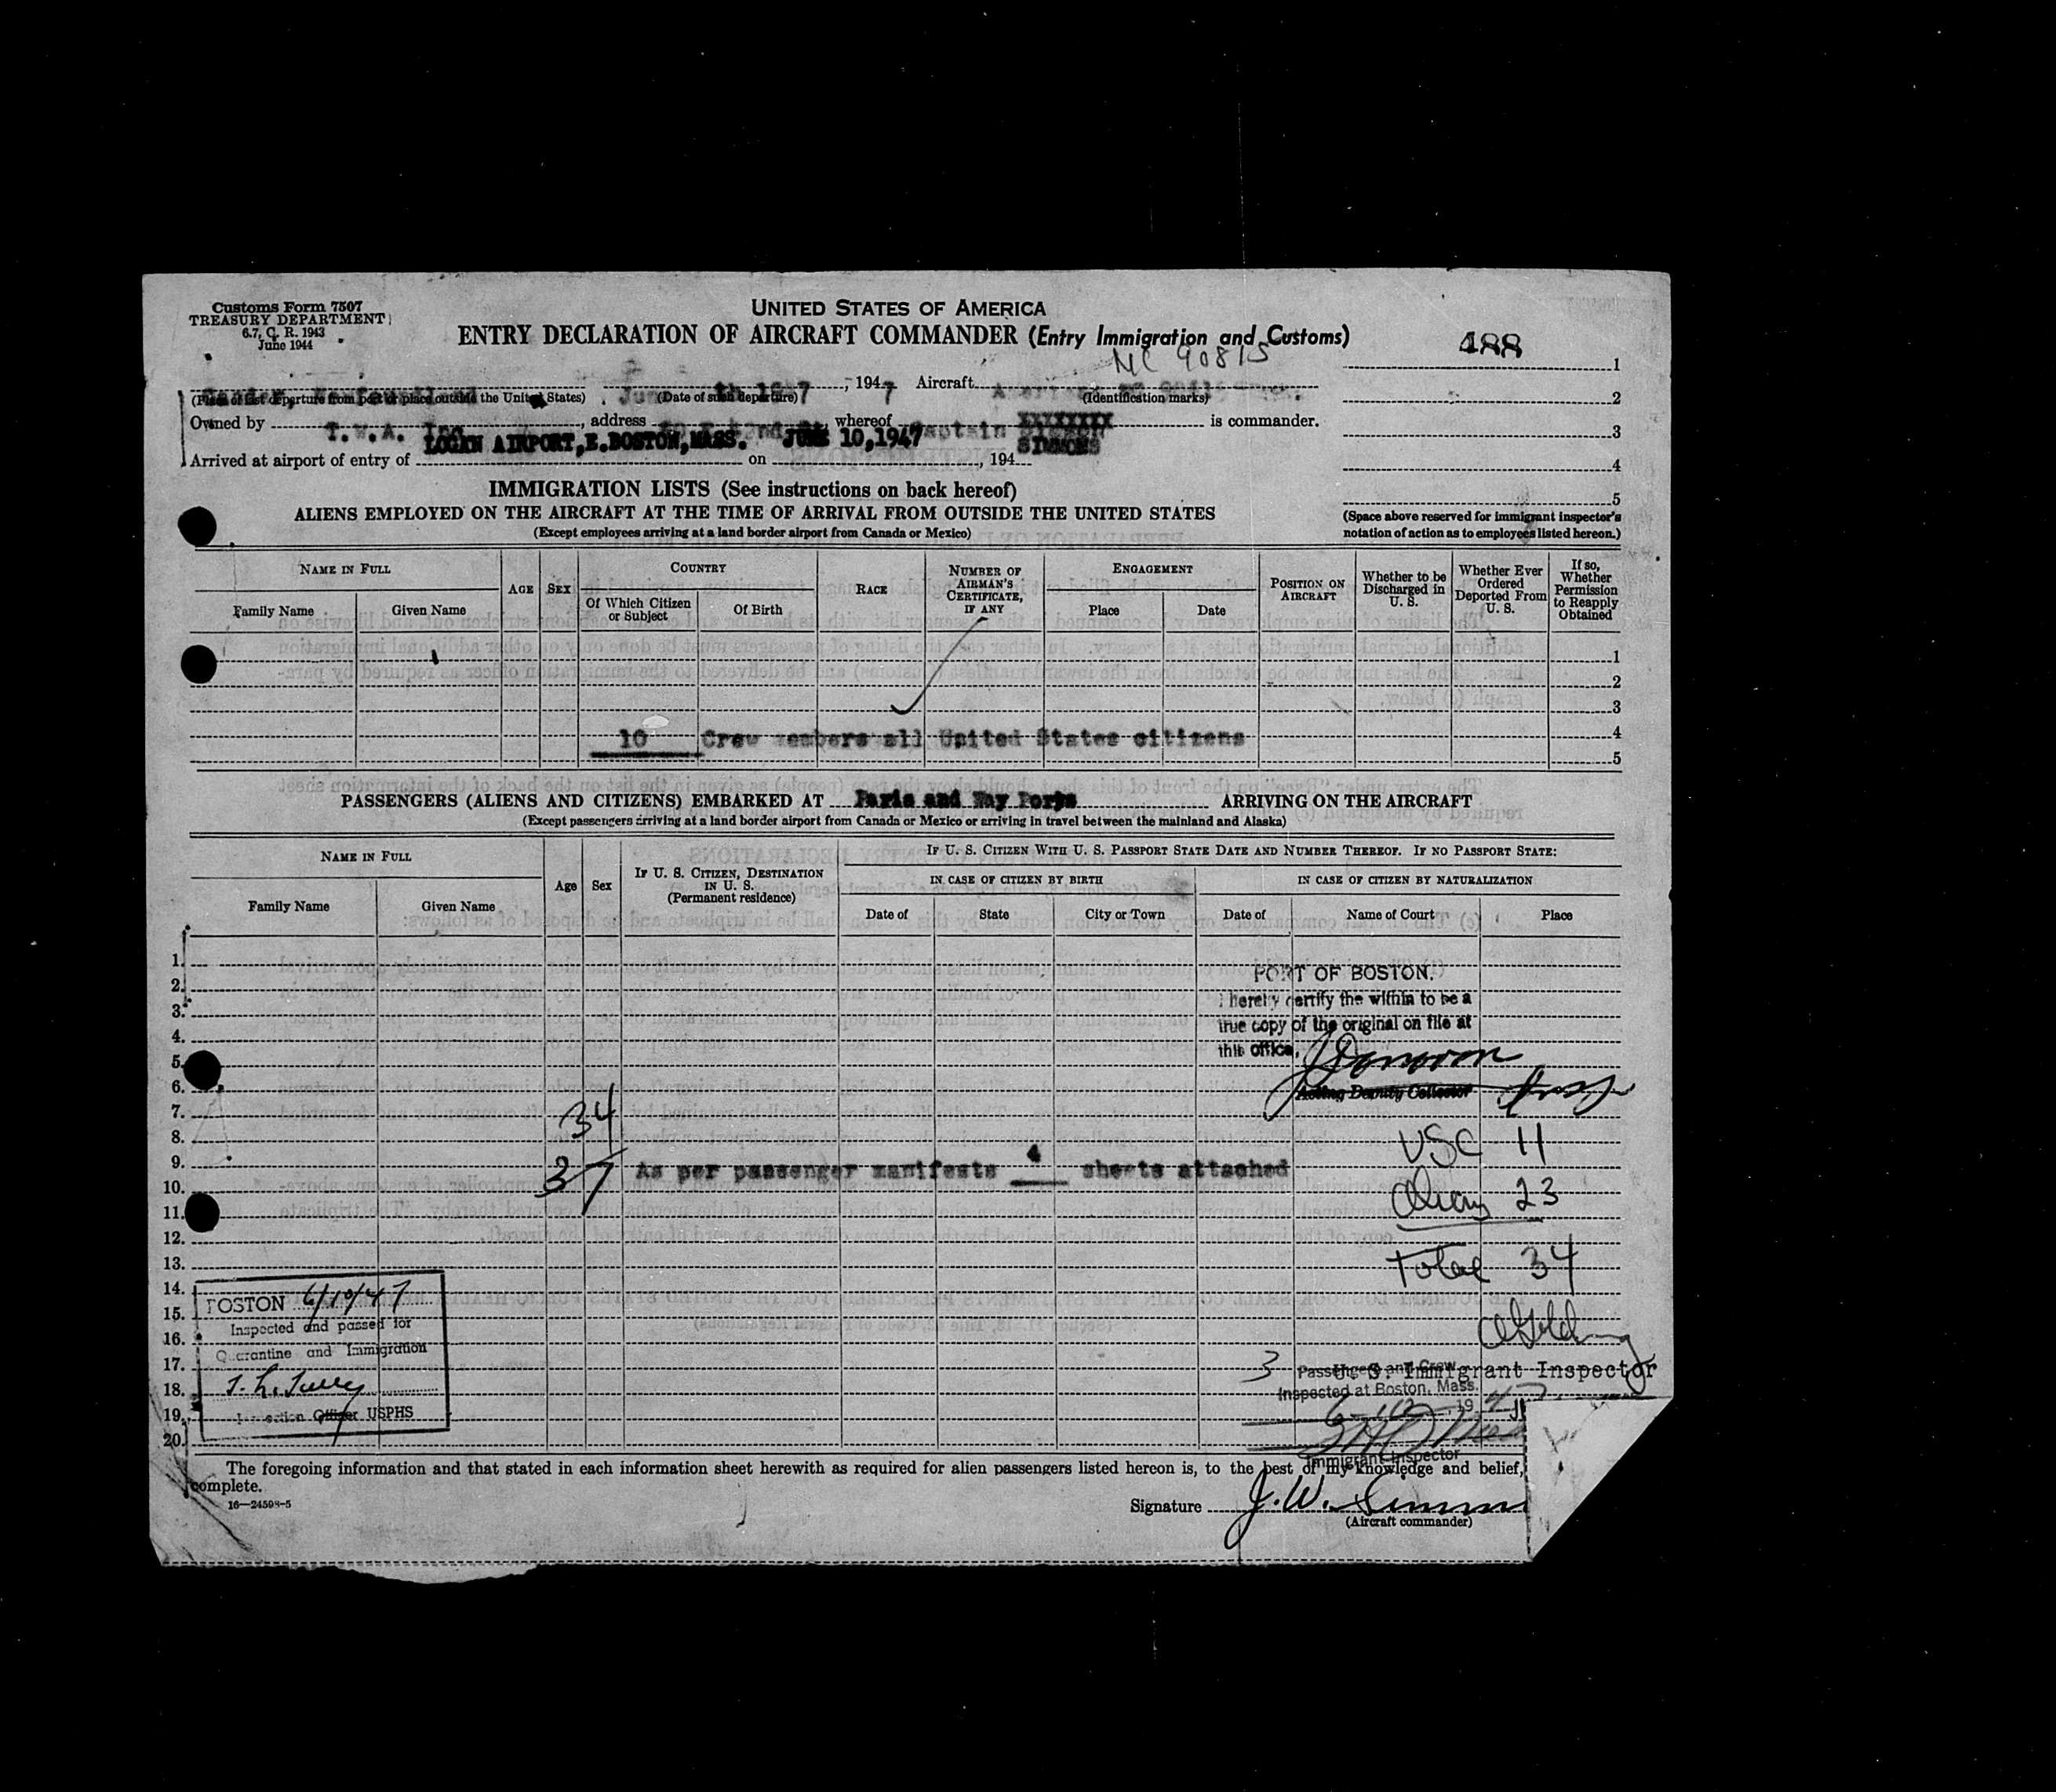 Customs Form 7507
TREASURY DEPARTMENT
6.7, C. R. 1943
June 1944
UNITED STATES OF AMERICA
ENTRY DECLARATION OF AIRCRAFT COMMANDER (Entry Immigration and Customs)
488
NC 90815
1
, 1947 Aircraft
(Place of last departure from port or place outside the United States) (Date of such departure) (Identification marks)
2
Owned by T.W.A. Inc , address whereof Captain XXXXXXXX is commander.
3
LOGAN AIRPORT, E.BOSTON, MASS. JUNE 10, 1947 SIMMONS
Arrived at airport of entry of on , 194
4
IMMIGRATION LISTS (See instructions on back hereof)
5
ALIENS EMPLOYED ON THE AIRCRAFT AT THE TIME OF ARRIVAL FROM OUTSIDE THE UNITED STATES
(Space above reserved for immigrant inspector's
(Except employees arriving at a land border airport from Canada or Mexico)
notation of action as to employees listed hereon.)
NAME IN FULL
Family Name
Given Name
AGE
SEX
COUNTRY
Of Which Citizen or Subject
Of Birth
RACE
NUMBER OF AIRMAN'S CERTIFICATE, IF ANY
ENGAGEMENT
Place
Date
POSITION ON AIRCRAFT
Whether to be Discharged in U. S.
Whether Ever Ordered Deported From U. S.
If so, Whether Permission to Reapply Obtained
1
2
3
4
10 Crew members all United States citizens
5
PASSENGERS (ALIENS AND CITIZENS) EMBARKED AT Paris and Way Ports ARRIVING ON THE AIRCRAFT
(Except passengers arriving at a land border airport from Canada or Mexico or arriving in travel between the mainland and Alaska)
NAME IN FULL
Family Name
Given Name
Age
Sex
IF U. S. CITIZEN, DESTINATION IN U. S.
(Permanent residence)
IF U. S. CITIZEN WITH U. S. PASSPORT STATE DATE AND NUMBER THEREOF. IF NO PASSPORT STATE:
IN CASE OF CITIZEN BY BIRTH
IN CASE OF CITIZEN BY NATURALIZATION
Date of
State
City or Town
Date of
Name of Court
Place
1.
PORT OF BOSTON.
2.
I hereby certify the within to be a
3.
true copy of the original on file at
4.
this office.
5.
JDonovan
6.
Acting Deputy Collector
7.
34
8.
USC 11
9.
37 As per passenger manifests 4 sheets attached
10.
Aliens 23
11.
12.
13.
Total 34
14.
BOSTON 6/10/47
15.
Inspected and passed for
16.
Quarantine and Immigration
17.
3 Passengers and Crew
U. S. Immigrant Inspector
18.
Inspected at Boston, Mass.
6-10, 1947
19.
Inspection Officer USPHS
20.
Immigrant Inspector
The foregoing information and that stated in each information sheet herewith as required for alien passengers listed hereon is, to the best of my knowledge and belief,
complete.
16—24598-5
Signature J. W. Simm
(Aircraft commander)